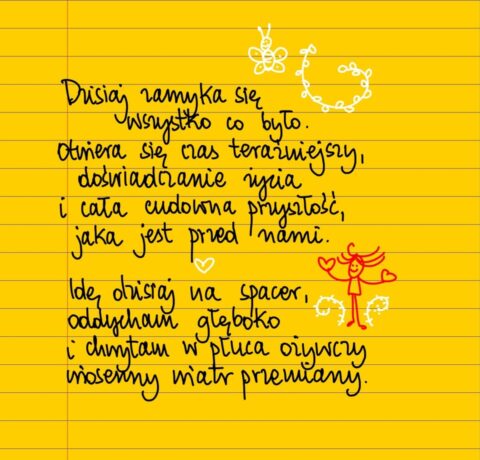 Dzisiaj zamyka się
wszystko co było.
Otwiera się czas teraźniejszy,
doświadczanie życia
i cała cudowna przyszłość,
jaka jest przed nami.
Idę dzisiaj na spacer,
oddycham głęboko
i chwytam w płuca ożywczy
wiosenny wiatr przemiany.